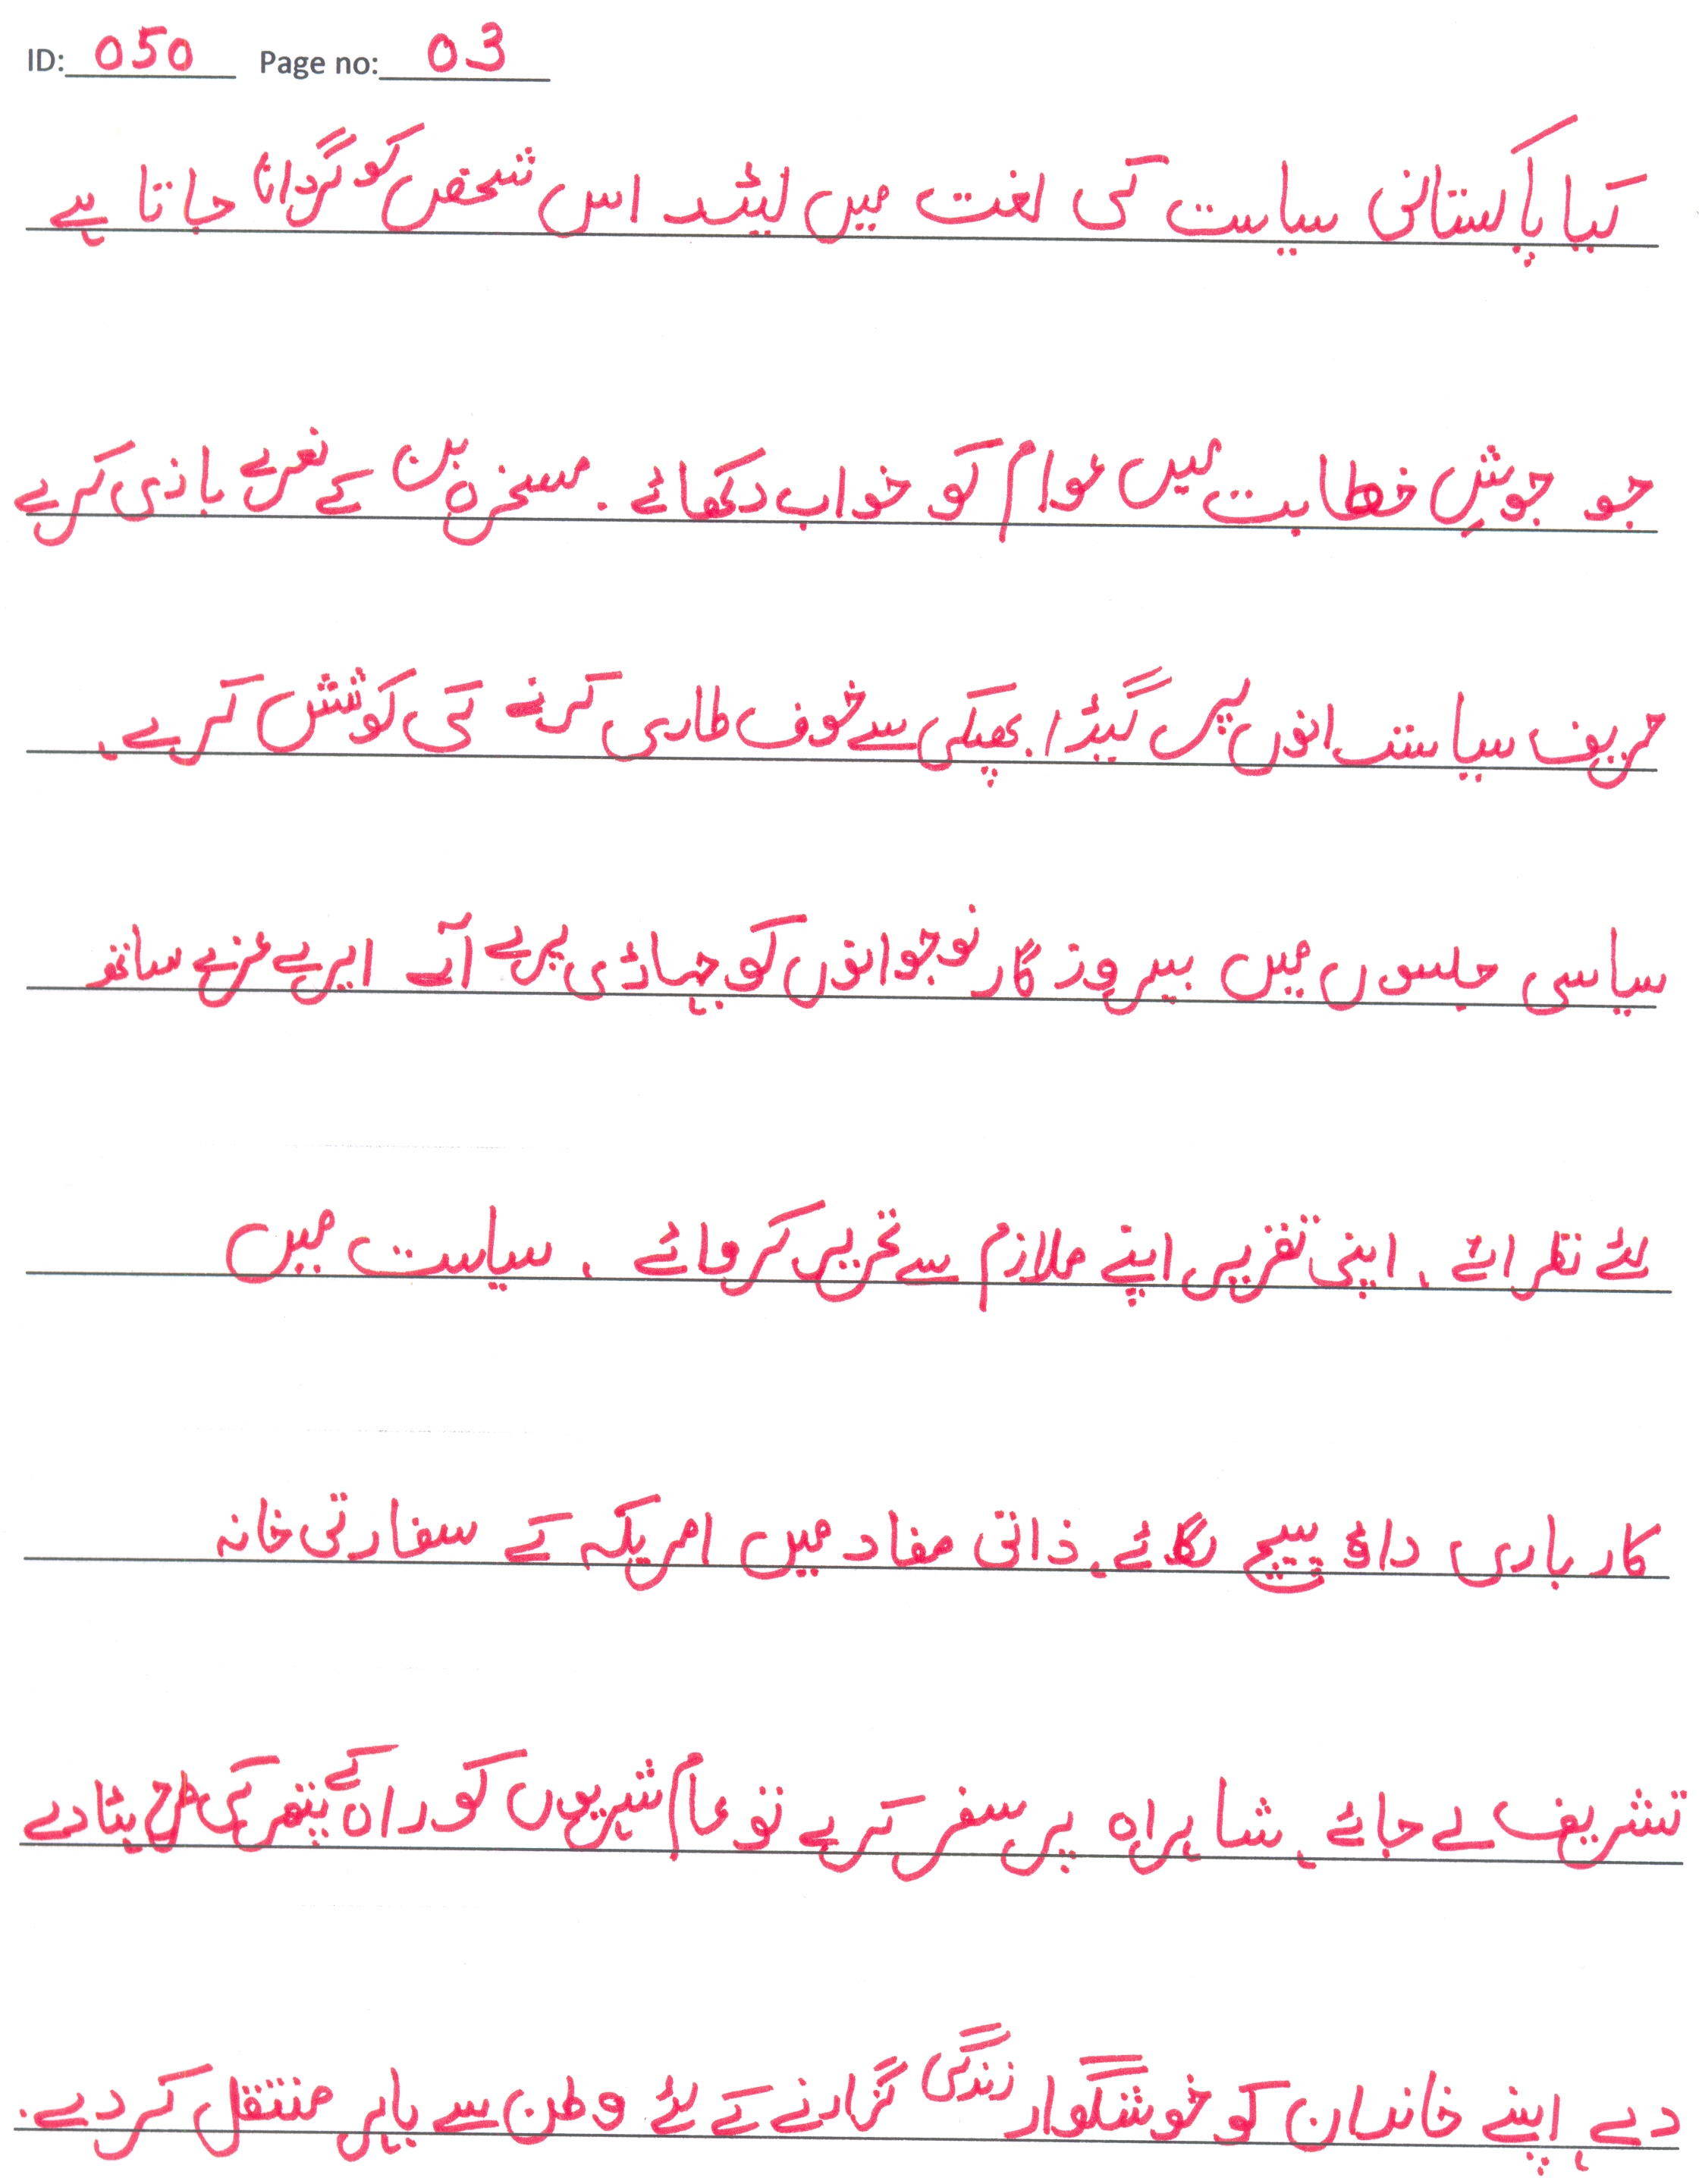 ID: 050 Page no: 03
کیا پاکستانی سیاست کی لغت میں لیڈر اس شخص کو گردانا جاتا ہے
جو جوش خطابت میں عوام کو خواب دکھائے ۔ مسخرہ پن کے نعرے بازی کرے
حریف سیاستدانوں پر گیڈر بھپکی سے خوف طاری کرنے کی کوشش کرے ۔
سیاسی جلسوں میں بیروزگار نوجوانوں کو دہاڑی پر لے آئے ایرے غیرے ساتھ
لئے نظر ائے ، اپنی تقریر اپنے ملازم سے تحریر کروائے ، سیاست میں
کارباری داؤ پیچ لگائے، ذاتی مفاد میں امریکہ کے سفارتی خانہ
تشریف لے جائے، شاہراہ پر سفر کرے تو عام شہریوں کو راہ کے پتھر کی طرح ہٹا دے
دے، اپنے خاندان کو خوشگوار زندگی گزارنے کے لئے وطن سے باہر منتقل کر دے ۔